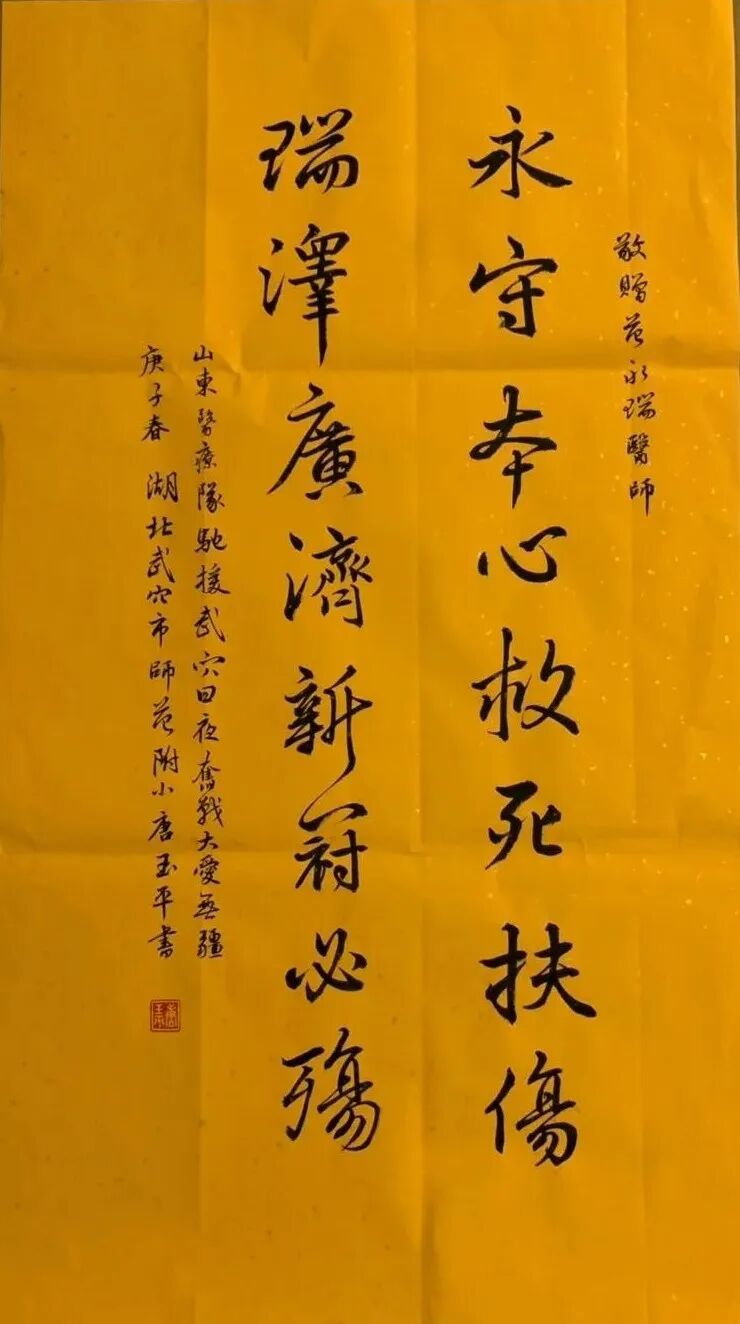 敬贈范永瑞醫師
永守本心救死扶傷
瑞澤廣濟新冠必殤
山東醫療隊馳援武穴日夜奮戰大愛無疆
庚子春 湖北武穴市師范附小唐玉平書